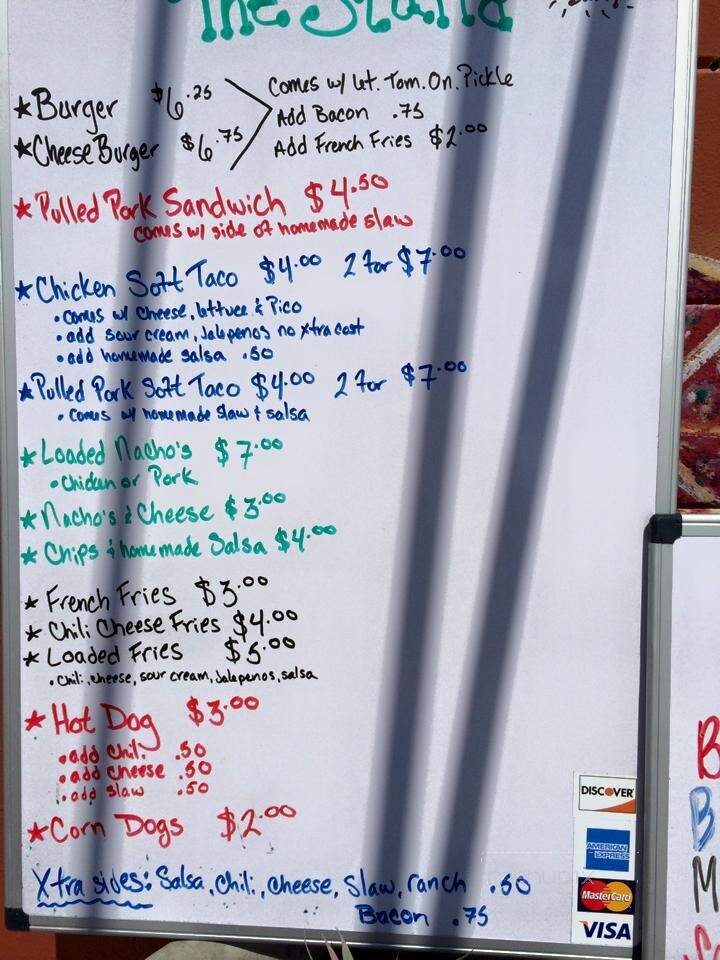 The Stand
*Burger $6.25
*Cheese Burger $6.75
Comes w/ Let. Tom. On. Pickle
Add Bacon .75
Add French Fries $2.00
*Pulled Pork Sandwich $4.50
comes w/ side of homemade slaw
*Chicken Soft Taco $4.00 2 for $7.00
• comes w/ Cheese, lettuce & Pico
• add sour cream, Jalepenos no Xtra cost
• add homemade salsa .50
*Pulled Pork Soft Taco $4.00 2 for $7.00
• comes w/ homemade slaw & salsa
*Loaded Nacho's $7.00
• Chicken or Pork
*Nacho's & Cheese $3.00
*Chips & homemade Salsa $4.00
*French Fries $3.00
*Chili Cheese Fries $4.00
*Loaded Fries $5.00
• Chili, cheese, sour cream, Jalepenos, salsa
*Hot Dog $3.00
• add Chili .50
• add Cheese .50
• add slaw .50
*Corn Dogs $2.00
Xtra sides: Salsa, Chili, Cheese, Slaw, ranch .50
Bacon .75
DISCOVER
AMERICAN EXPRESS
MasterCard
VISA
B
B
M